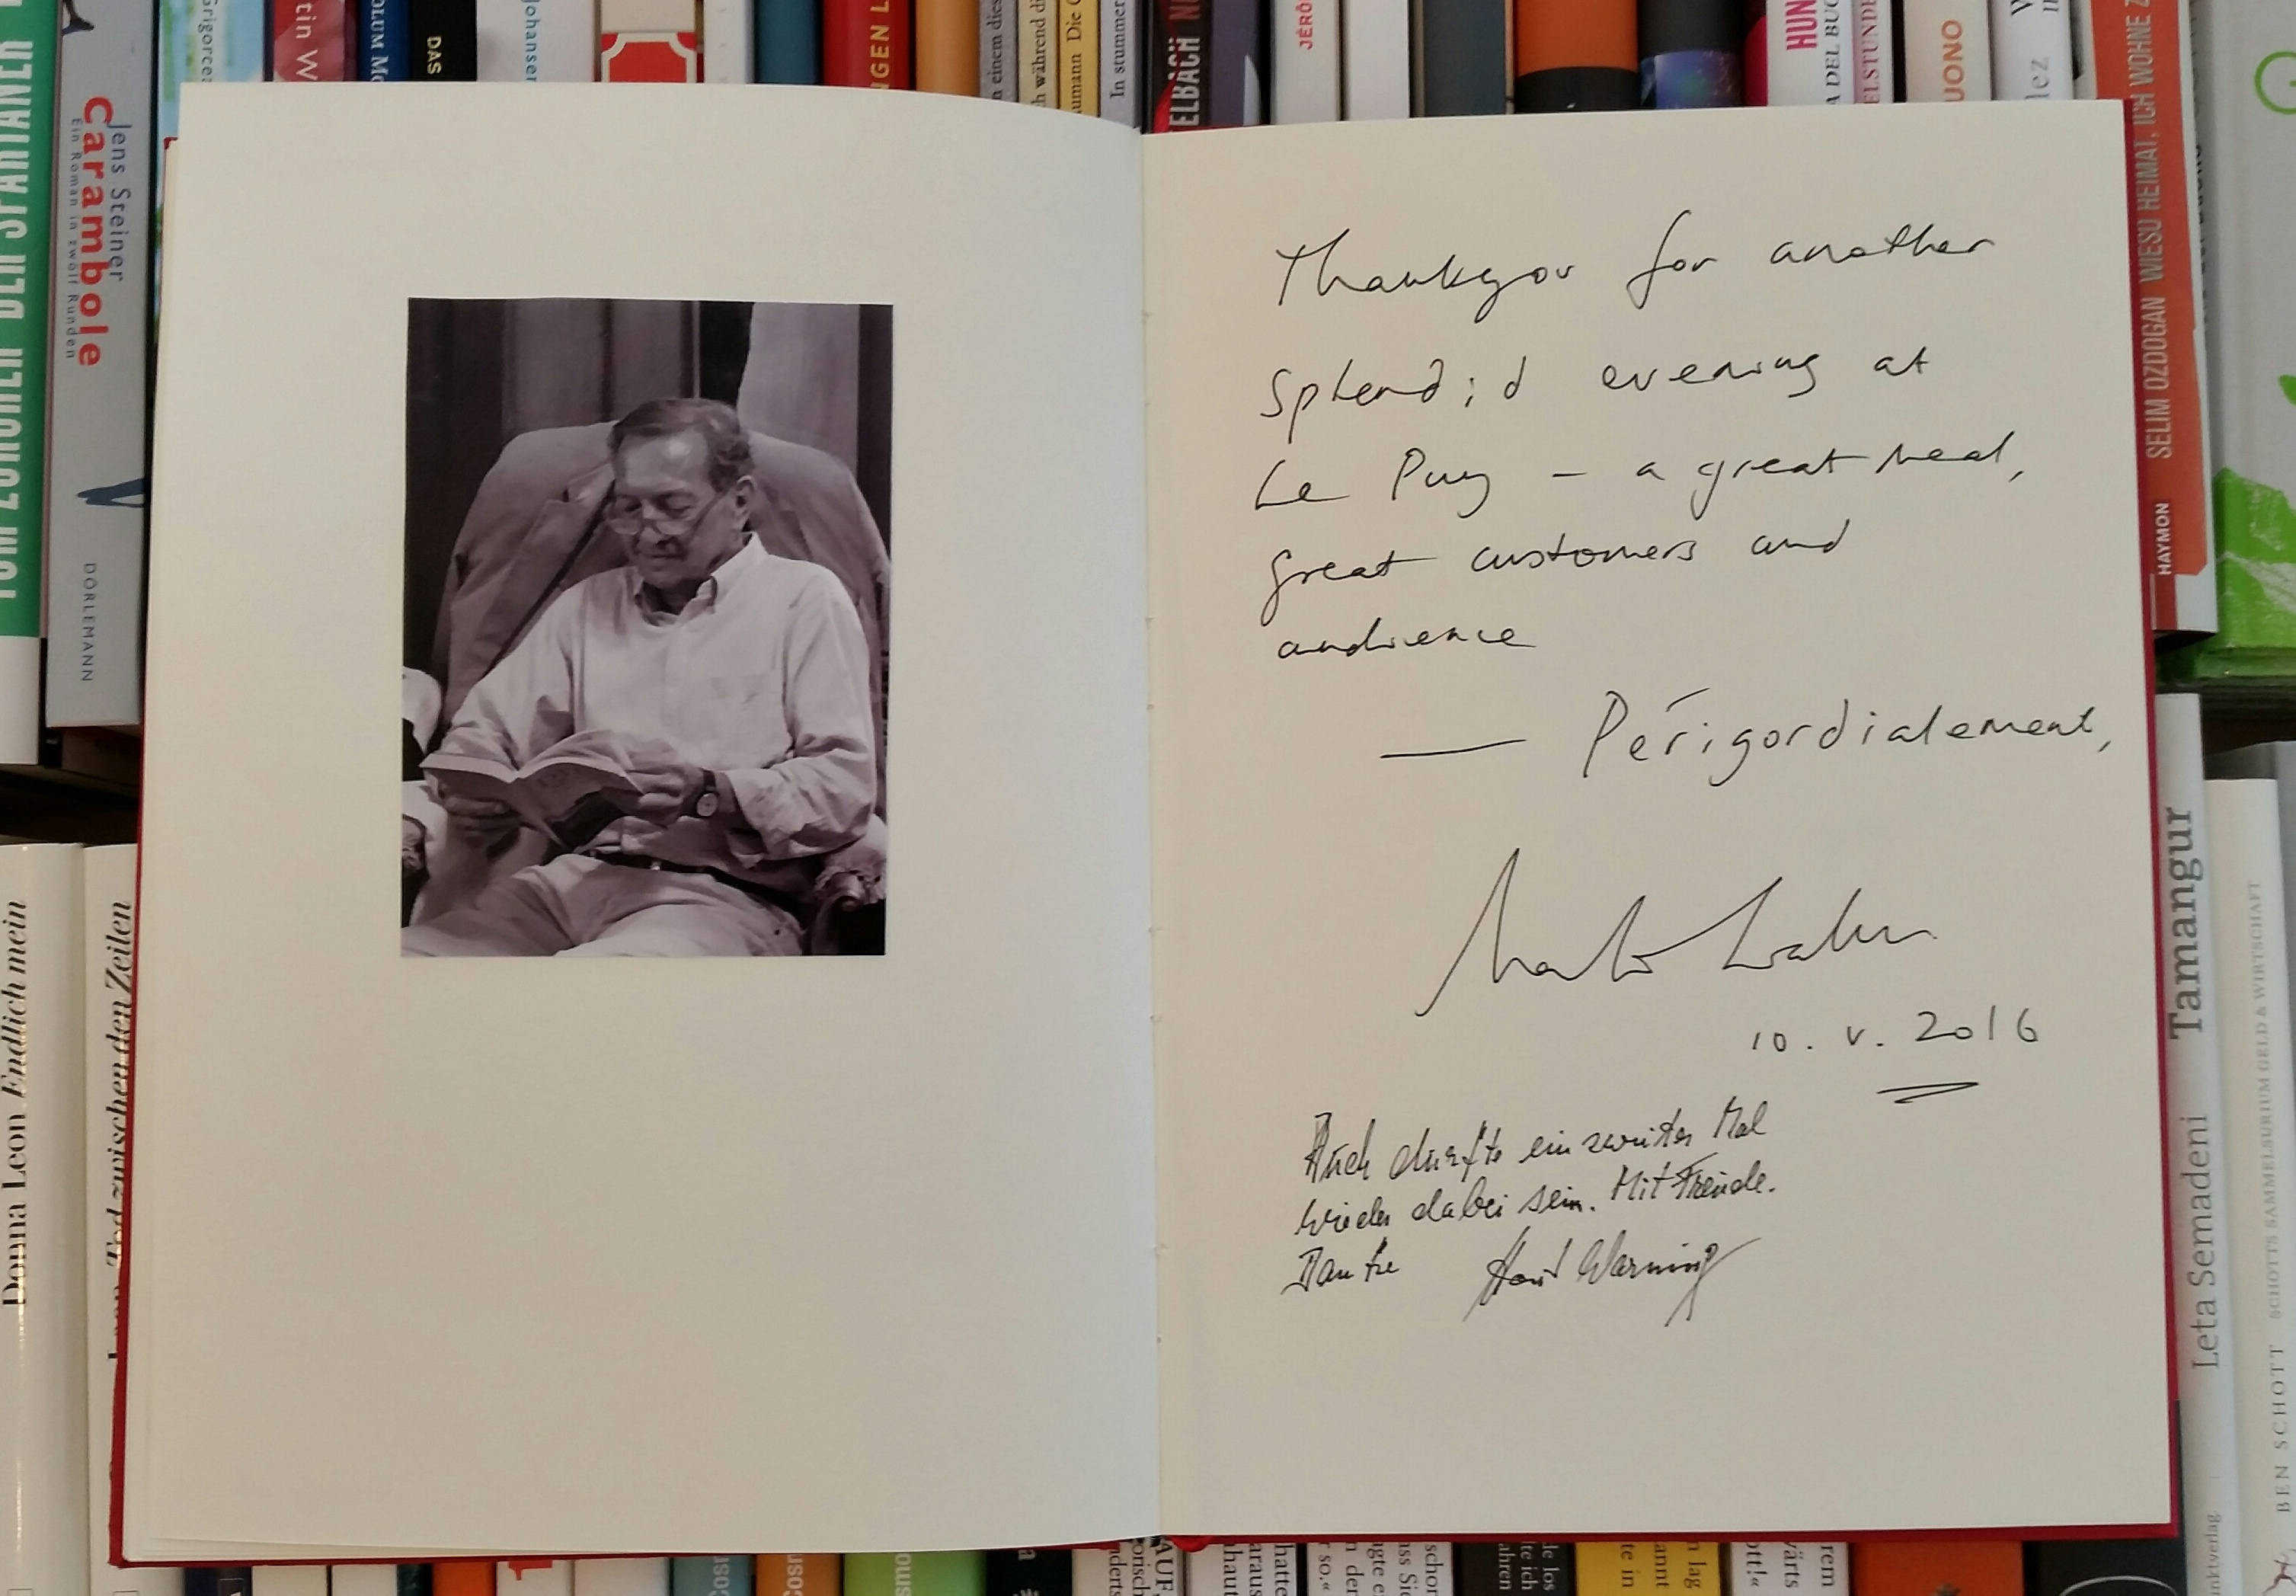 Grigorce
tin W
OLUM M
DAS
Johansen
NGEN L
n einem dies
h während di
umann Die
In stummer
ELBACH
JÉRÔ
HUN
A DEL BUC
ELSTUNDE
UONO
lez
Jens Steiner
Carambole
Ein Roman in zwölf Runden
DÖRLEMANN
SELIM OZDOGAN WIESO HEIMAT, ICH WOHNE Z
HAYMON
Thankyou for another
splendid evening at
Le Puy – a great meal,
great customers and
audience
— Périgordialement,
10. V. 2016
Auch durfte ein zweites Mal
wieder dabei sein. Mit Freude.
Danke Warming
Donna Leon Endlich mein
Tod zwischen den Zeilen
Leta Semadeni Tamangur
BEN SCHOTT SCHOTTS SAMMELSURIUM GELD & WIRTSCHAFT